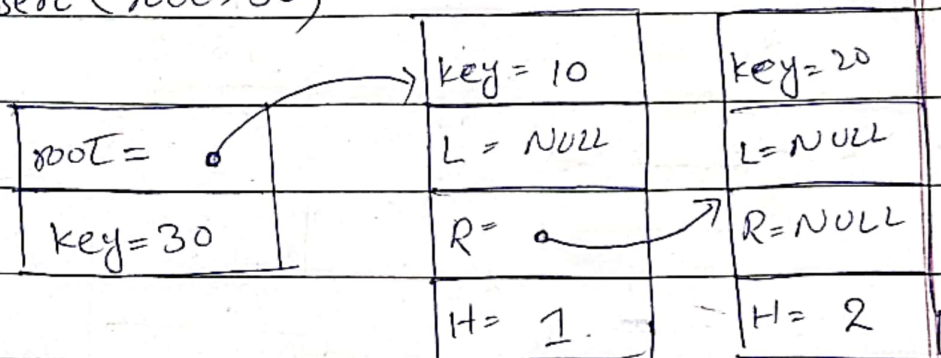 root =
key = 30
key = 10
L = NULL
R =
H = 1.
key = 20
L = NULL
R = NULL
H = 2